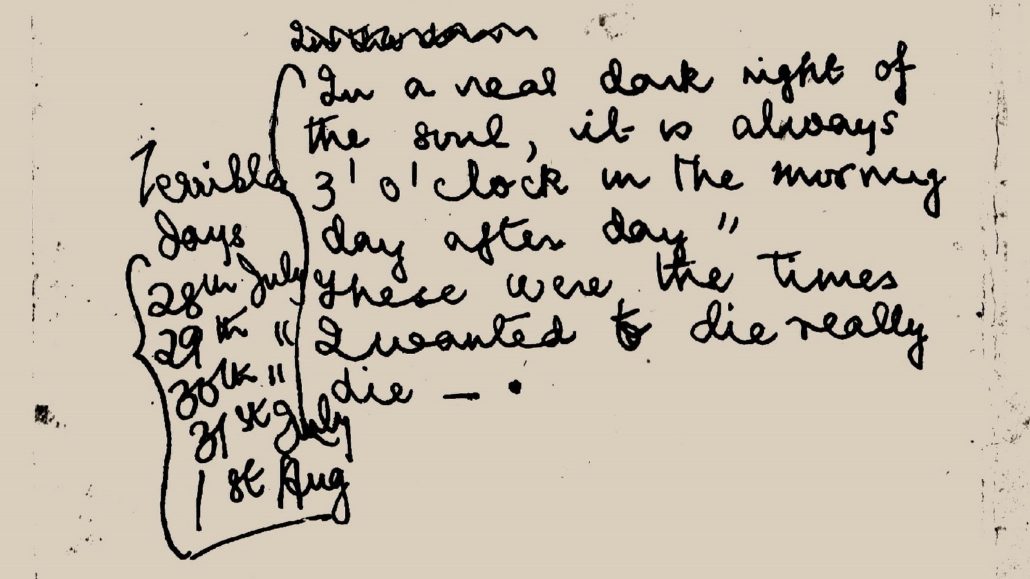 In a real dark night of
the soul, it is always
3' o' clock in the morning
day after day"
These were the times
I wanted to die really
die — .
Terrible
days
28th July
29th "
30th "
31st July
1st Aug